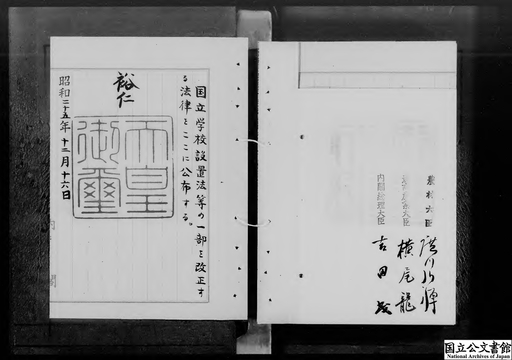 国立学校設置法等の一部を改正す
る法律をここに公布する。
裕仁
天皇
御璽
昭和二十五年十二月十六日
内閣
農林大臣 廣川弘禅
大臣 横尾龍
内閣総理大臣 吉田茂
国立公文書館
National Archives of Japan